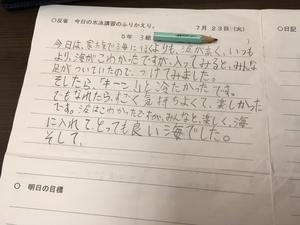 ○反省 今日の水泳講習のふりかえり。 7月23日(火)
5年 3組
今日は、家族で海に行くよりも、波が高く、いつも
より、海がこわかったですが、入ってみると、みんな
足がついていたので、つけてみました。
そしたら、「キーン」と冷たかったです。
でもなれたら、すごく気持ちよくて、楽しかった
です。波はこわかったですが、みんなと、楽しく、海
に入れて、とっても良い海でした。
そして、
○ 明日の目標
○日記